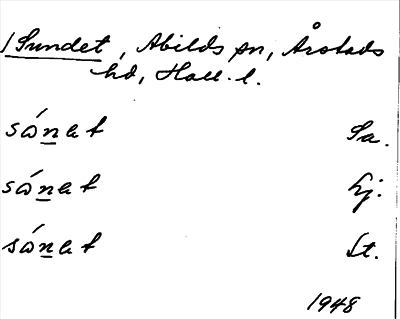 /Sundet, Abilds sn, Årstads
hd, Hall. l.
sónat Sa.
sónat Lj.
sónat St.
1948